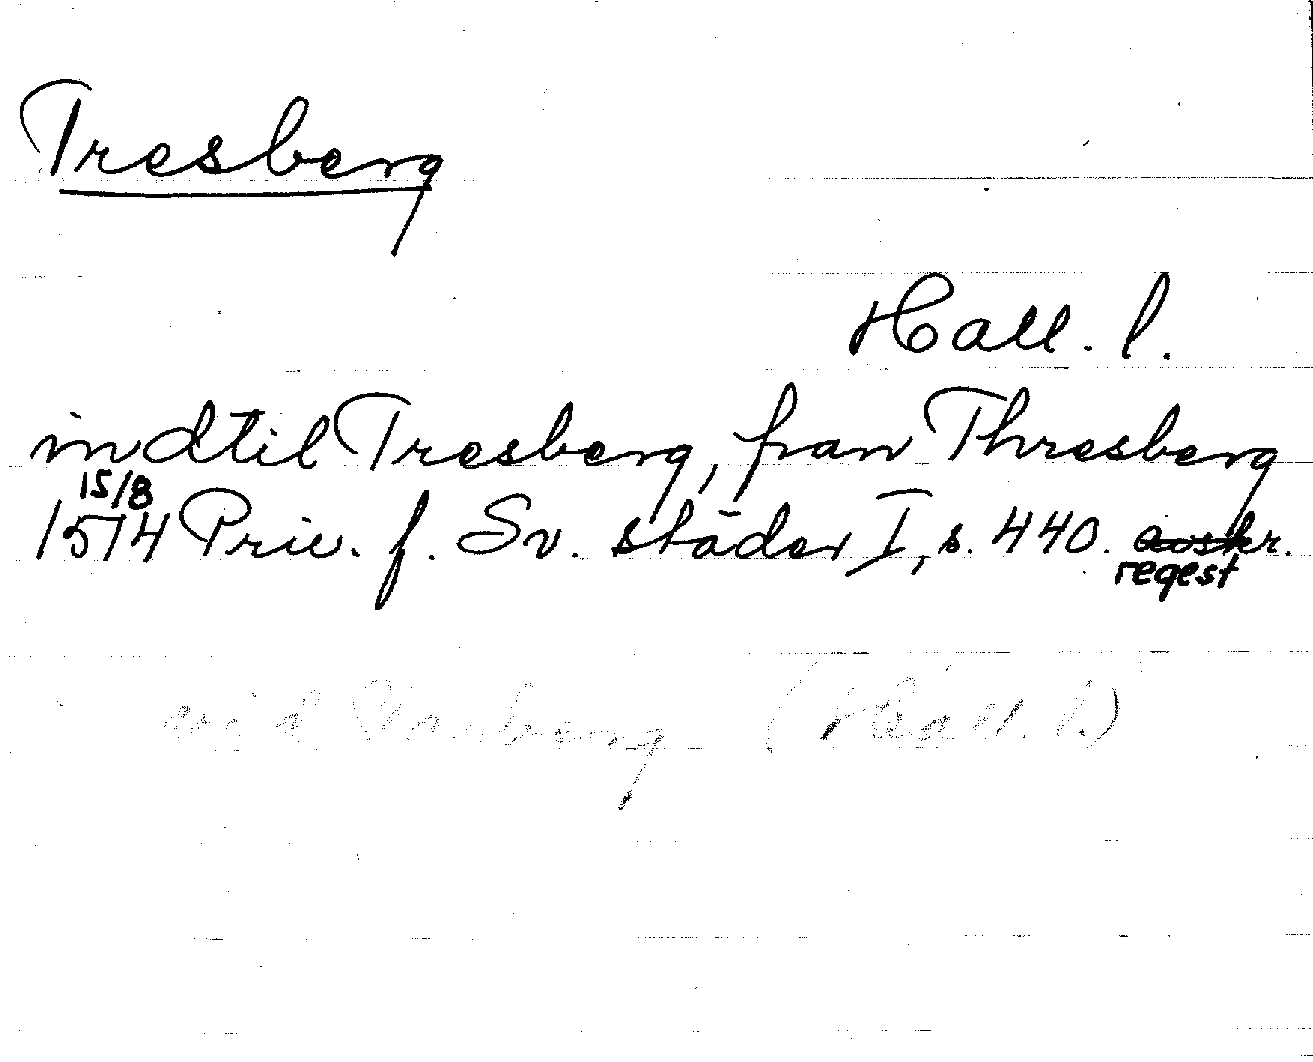 Tresberg
Hall. l.
indtil Tresberg, fran Thresberg
15/8
1514 Priv. f. Sv. städer I, s. 440. avskr.
regest
vid (Hall. l.)